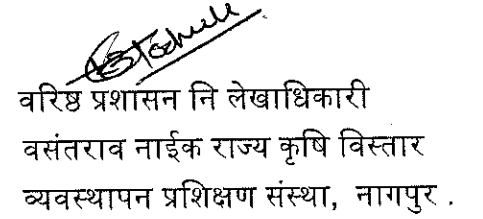 वरिष्ठ प्रशासन नि लेखाधिकारी
वसंतराव नाईक राज्य कृषि विस्तार
व्यवस्थापन प्रशिक्षण संस्था, नागपुर .